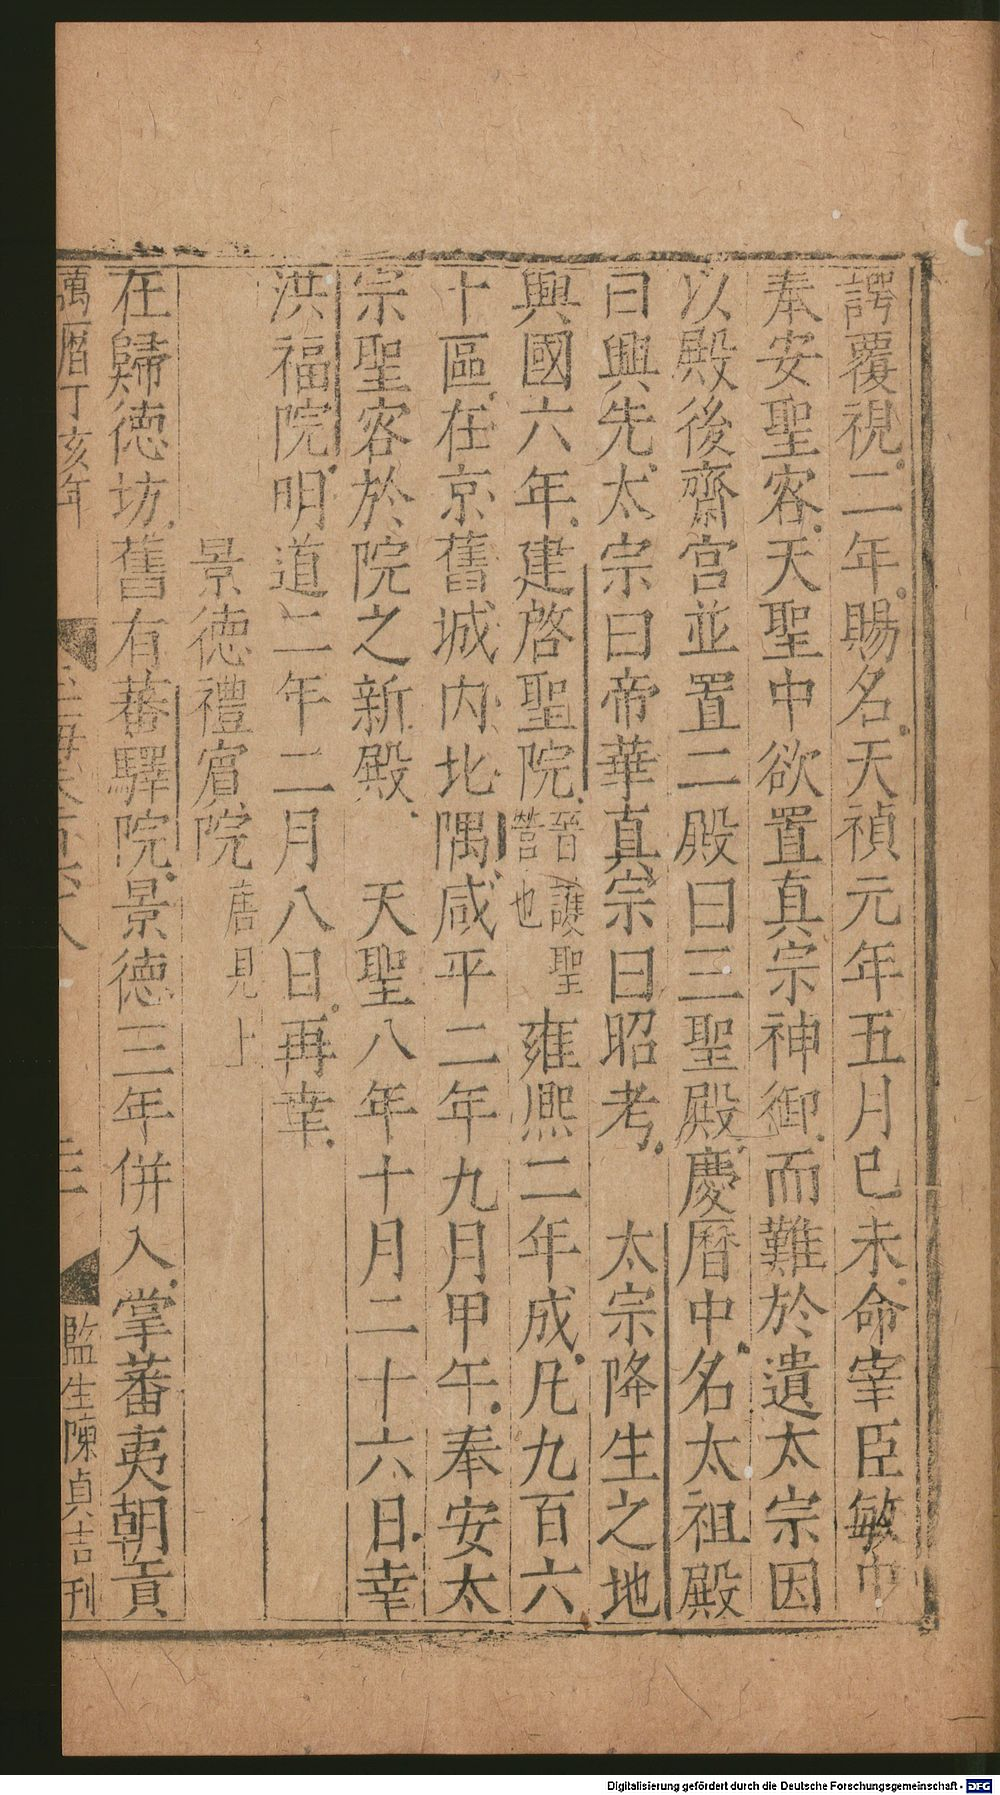 諤覆視二年賜名天禎元年五月己未命宰臣敏中
奉安聖容天聖中欲置真宗神御而難於遺太宗因
以殿後齋宮並置二殿曰三聖殿慶曆中名太祖殿
曰興先太宗曰帝華真宗曰昭考 太宗降生之地
興國六年建啓聖院晉護聖營也雍熈二年成凡九百六
十區在京舊城內北隅咸平二年九月甲午奉安太
宗聖容於院之新殿 天聖八年十月二十六日幸
洪福院明道二年二月八日再幸
景德禮賓院唐見上
在歸德坊舊有蕃驛院景德三年併入掌蕃夷朝貢
萬曆丁亥年 三 監生陳貞吉刊
Digitalisierung gefördert durch die Deutsche Forschungsgemeinschaft - DFG